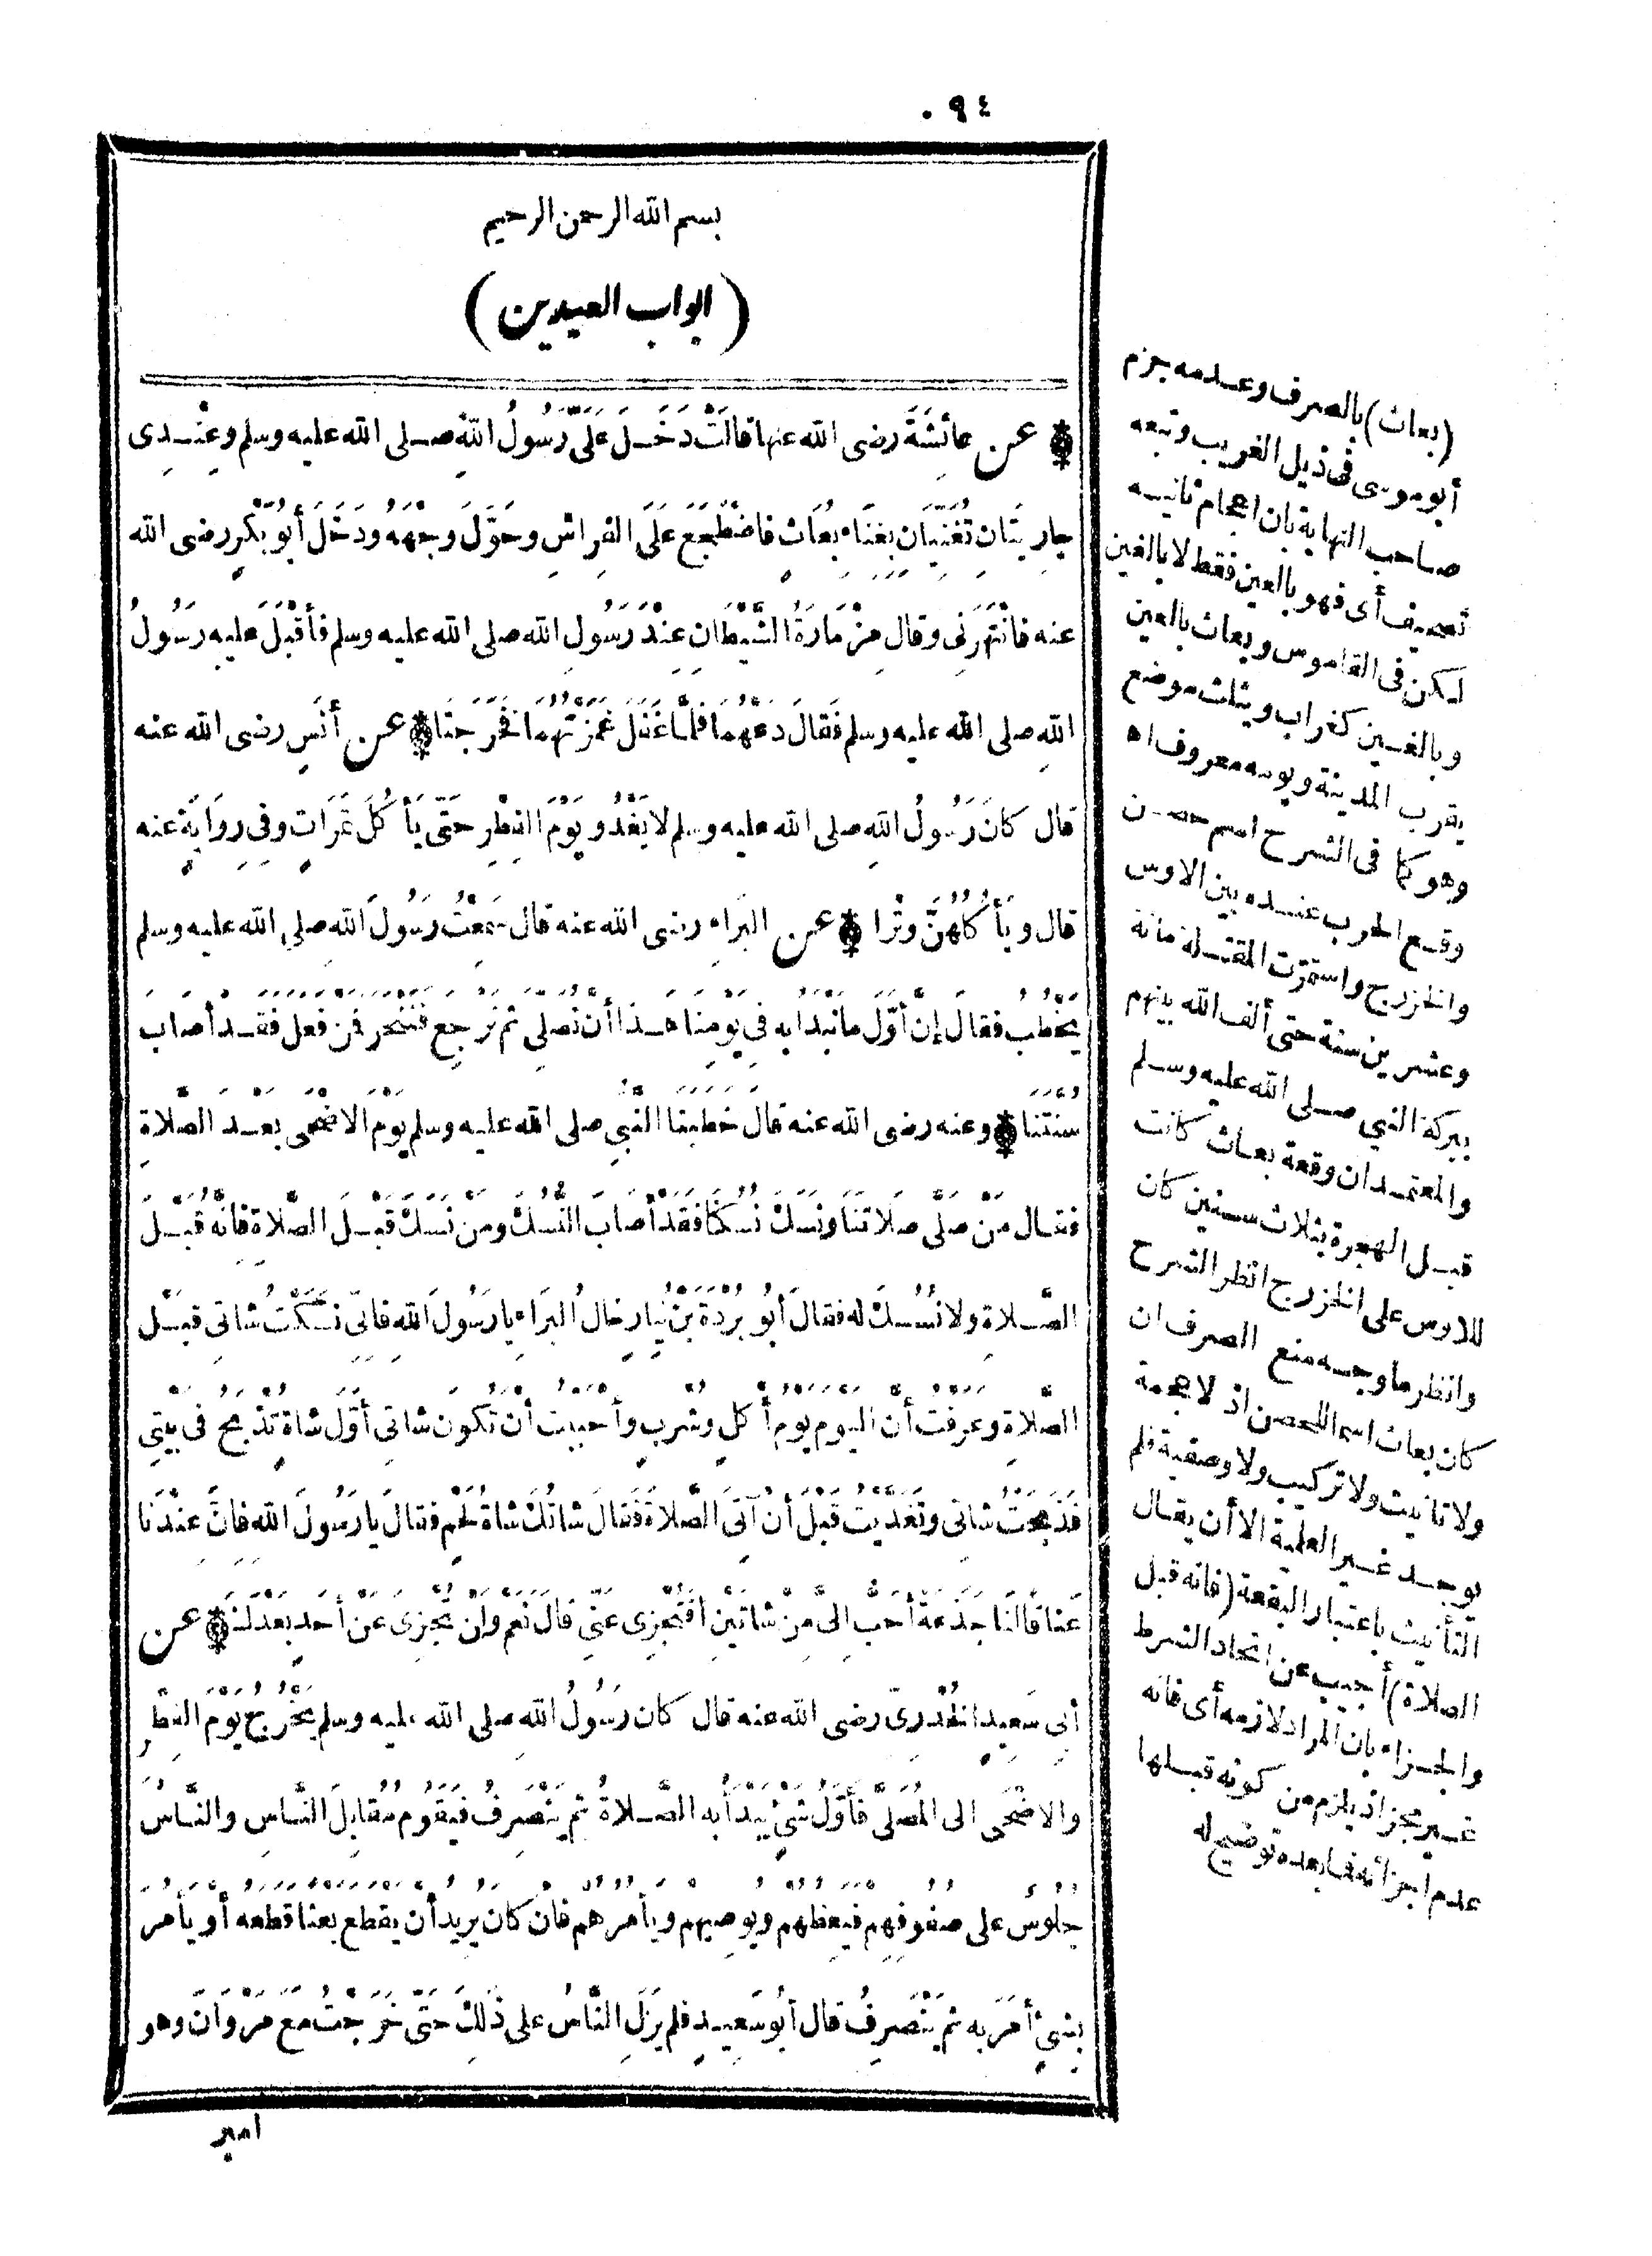 ٩٤
بسم الله الرحمن الرحيم
(ابواب العيدين)
عن عائِشَةَ رضى الله عنها قالَتْ دَخَلَ عَلَىَّ رَسُولُ اللهِ صلى الله عليه وسلم وعِنْدِى
جارِيَتانِ تُغَنِّيَانِ بِغِنَاءِ بُعَاثٍ فاضْطَجَعَ عَلَى الفِراشِ وحَوَّلَ وجْهَهُ ودَخَلَ أبُو بَكْرٍ رضى الله
عنه فانْتَهَرَنِى وقال مِزْمارَةُ الشَّيْطَانِ عِنْدَ رَسُولِ الله صلى الله عليه وسلم فأقْبَلَ عليهِ رَسُولُ
اللهِ صلى الله عليه وسلم فَقالَ دَعْهُمَا فلمَّا غَفَلَ غَمَزْتُهُمَا فَخَرَجَتَا عن أنَسٍ رضى الله عنه
قال كانَ رَسُولُ اللهِ صلى الله عليه وسلم لا يَغْدُو يَوْمَ الفِطْرِ حَتَّى يَأْكُلَ تَمَرَاتٍ وفِى رِوَايَةٍ عنه
قال ويَأْكُلُهُنَّ وِتْرا عن البَرَاءِ رضى الله عنه قال سَمِعْتُ رَسُولَ اللهِ صلى الله عليه وسلم
يَخْطُبُ فقالَ إنَّ أوَّلَ ما نَبْدَأُ بِهِ فِى يَوْمِنا هَذا أنْ نُصَلِّىَ ثم نَرْجِعَ فَنَنْحَرَ فَمَنْ فَعَلَ فَقَدْ أصَابَ
سُنَّتَنا وعنه رضى الله عنه قالَ خَطَبَنا النَّبِىُّ صلى الله عليه وسلم يَوْمَ الاَضْحَى بَعْدَ الصَّلاةِ
فقال مَنْ صَلَّى صَلاتَنَا ونَسَكَ نُسُكَنا فَقَدْ أصَابَ النُّسُكَ ومَنْ نَسَكَ قَبْلَ الصَّلاةِ فانَّهُ قَبْلَ
الصَّلاةِ ولا نُسُكَ له فقالَ أبُو بُرْدَةَ بْنُ نِيارٍ خالُ البَرَاءِ يا رَسُولَ اللهِ فانِّى نَسَكْتُ شاتِى قَبْلَ
الصَّلاةِ وعَرَفْتُ أنَّ اليَوْمَ يَوْمُ أكْلٍ وشُرْبٍ وأحْبَبْتُ أنْ تَكُونَ شاتِى أوَّلَ شاةٍ تُذْبَحُ فى بَيْتِى
فَذَبَحْتُ شاتِى وتَغَدَّيْتُ قَبْلَ أنْ آتِىَ الصَّلاةَ فَقالَ شاتُكَ شاةُ لَحْمٍ فقالَ يا رَسُولَ اللهِ فانَّ عِنْدَنا
عَناقًا لنَا جَذَعَةً أحَبُّ اِلىَّ مِنْ شاتَيْنِ أفَتَجْزِى عَنِّى قالَ نَعَمْ ولَنْ تَجْزِىَ عَنْ أحَدٍ بَعْدَكَ عن
أبِى سَعِيدٍ الخُدْرِىِّ رضى الله عنه قال كان رَسُولُ اللهِ صلى الله عليه وسلم يَخْرُجُ يَوْمَ الفِطْرِ
والاضْحَى الى المُصَلَّى فأوَّلُ شَىْءٍ يَبْدَأُ به الصَّلاةُ ثم يَنْصَرِفُ فَيَقُومُ مُقابِلَ النَّاسِ والنَّاسُ
جُلُوسٌ على صُفُوفِهِمْ فَيَعِظُهُمْ ويُوصِيهِمْ ويَأْمُرُهُمْ فانْ كانَ يُرِيدُ أنْ يَقْطَعَ بَعْثا قَطَعَه أو يَأْمُرَ
بِشَىْءٍ أمَرَ به ثم يَنْصَرِفُ قال أبُو سَعِيدٍ فلم يَزَلِ النَّاسُ على ذَلِكَ حَتَّى خَرَجْتُ مَعَ مَرْوَانَ وهو
امير
(بعاث) بالصرف وعدمه جزم
أبو موسى فى ذيل الغريب وتبعه
صاحب النهاية بان اعجام ثانيه
تصحيف أى فهو بالعين فقط لا بالغين
لكن فى القاموس وبعاث بالعين
وبالغين كغراب ويثلث موضع
بقرب المدينة ويومه معروف اه
وهو كما فى الشرح اسم حصن
وقع الحرب عنده بين الاوس
والخزرج واستمرت المقتلة مائة
وعشرين سنة حتى ألف الله بينهم
ببركة النبي صلى الله عليه وسلم
والمعتمد ان وقعة بعاث كانت
قبل الهجرة بثلاث سنين كان
للاوس على الخزرج انظر الشرح
وانظر ما وجه منع الصرف ان
كان بعاث اسما للحصن اذ لا عجمة
ولا تانيث ولا تركيب ولا وصفية فلم
يوجد غير العلمية الا أن يقال
التأنيث باعتبار البقعة (فانه قبل
الصلاة) أجيب عن اتحاد الشرط
والجزاء بان المراد لازمه أى فانه
غير مجز اذ يلزم من كونه قبلها
عدم اجزائه فما بعده توضيح له